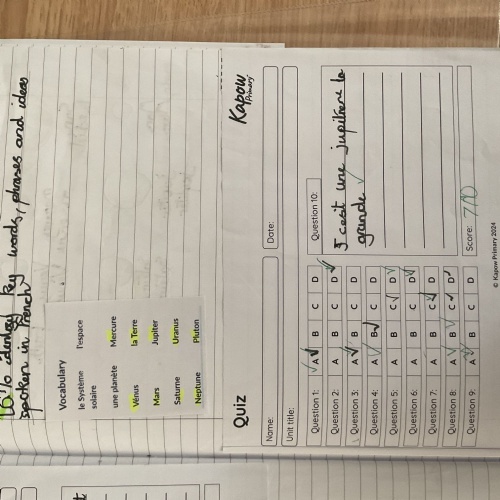 to identify key words, phrases and ideas
spoken in French
Vocabulary
le Système solaire
l'espace
une planète
Mercure
Vénus
la Terre
Mars
Jupiter
Saturne
Uranus
Neptune
Pluton
Quiz
Kapow
Primary
Name:
Date:
Unit title:
Question 1: A B C D
Question 2: A B C D
Question 3: A B C D
Question 4: A B C D
Question 5: A B C D
Question 6: A B C D
Question 7: A B C D
Question 8: A B C D
Question 9: A B C D
Question 10:
cest une jupitere la
grande
Score: 7/10
© Kapow Primary 2024